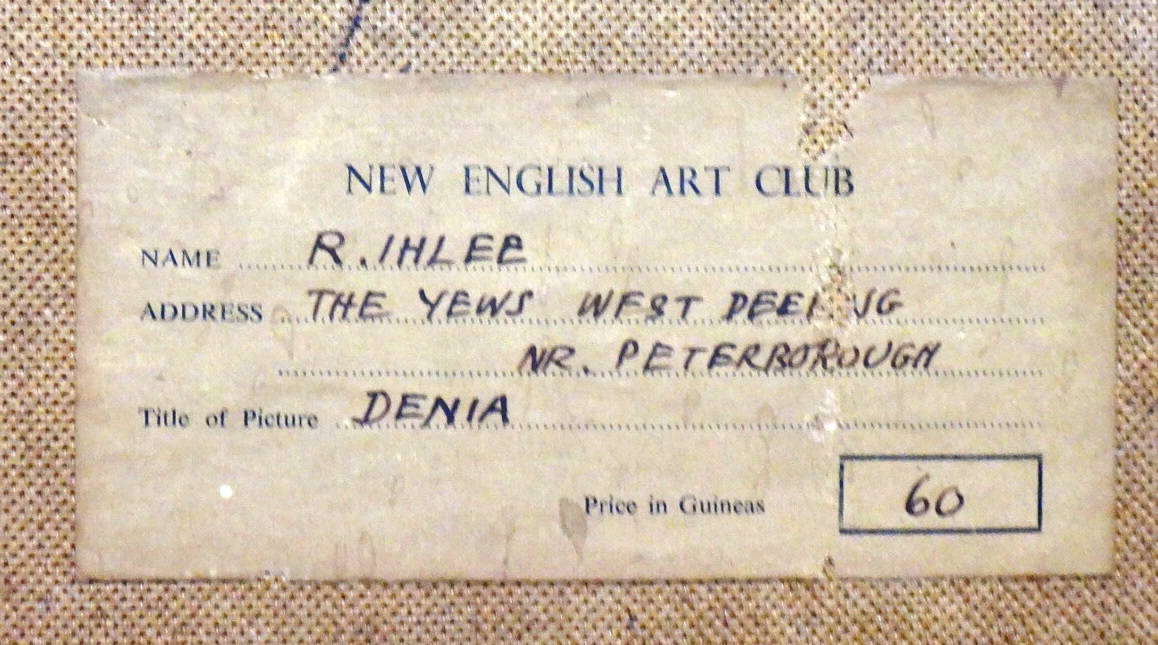 NEW ENGLISH ART CLUB
NAME R. IHLEE
ADDRESS THE YEWS WEST DEEPING
NR. PETERBOROUGH
Title of Picture DENIA
Price in Guineas 60